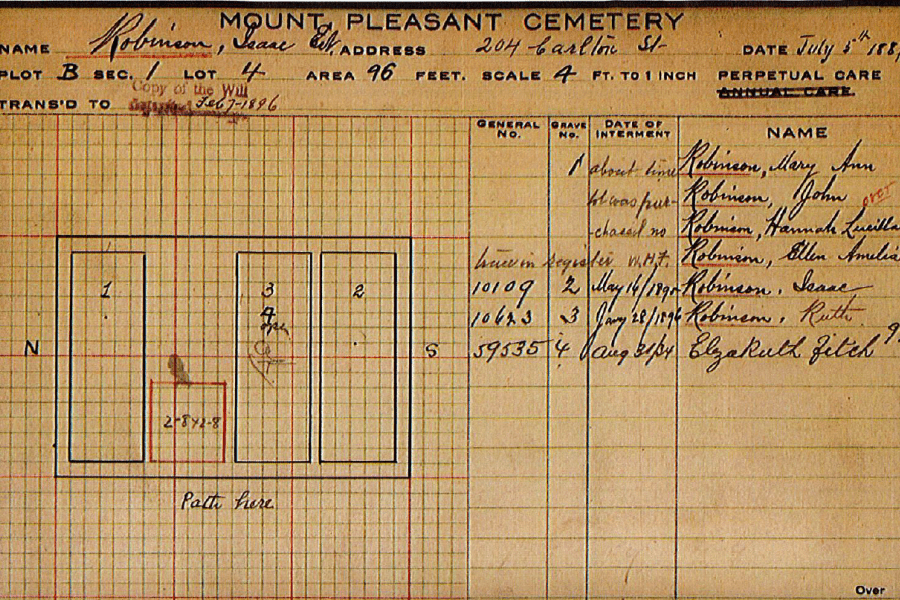 MOUNT PLEASANT CEMETERY
NAME Robinson, Isaac Est. ADDRESS 204 Carlton St DATE July 5th 188
PLOT B SEC. 1 LOT 4 AREA 96 FEET. SCALE 4 FT. TO 1 INCH PERPETUAL CARE
ANNUAL CARE.
Copy of the Will
TRANS'D TO Feb 7-1896
GENERAL NO. GRAVE NO. DATE OF INTERMENT NAME
1 about time Robinson, Mary Ann
lot was pur- Robinson, John over
-chased no Robinson, Hannah Lucilla
trace in register W.H.F. Robinson, Ellen Amelia
10109 2 May 16/1890 Robinson, Isaac
10623 3 Jany 28/1896 Robinson, Ruth
59535 4 Aug 31/34 Elzaruth Fitch
1 3 2
4
N S
2-8x2-8
Path here
Over